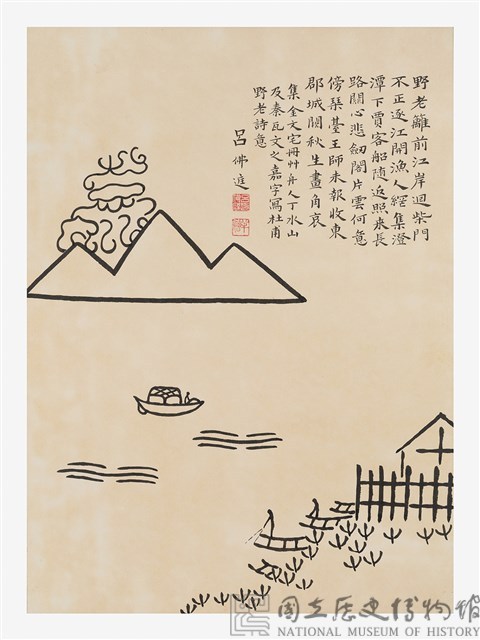 野老籬前江岸迴柴門
不正逐江開漁人網集澄
潭下賈客船隨返照來長
路關心悲劒閣片雲何意
傍琴臺王師未報收東
郡城闕秋生畫角哀
集金文宅冊艸舟人丁水山
及秦瓦文之嘉字寫杜甫
野老詩意
呂佛庭
國立歷史博物館
NATIONAL MUSEUM OF HISTORY